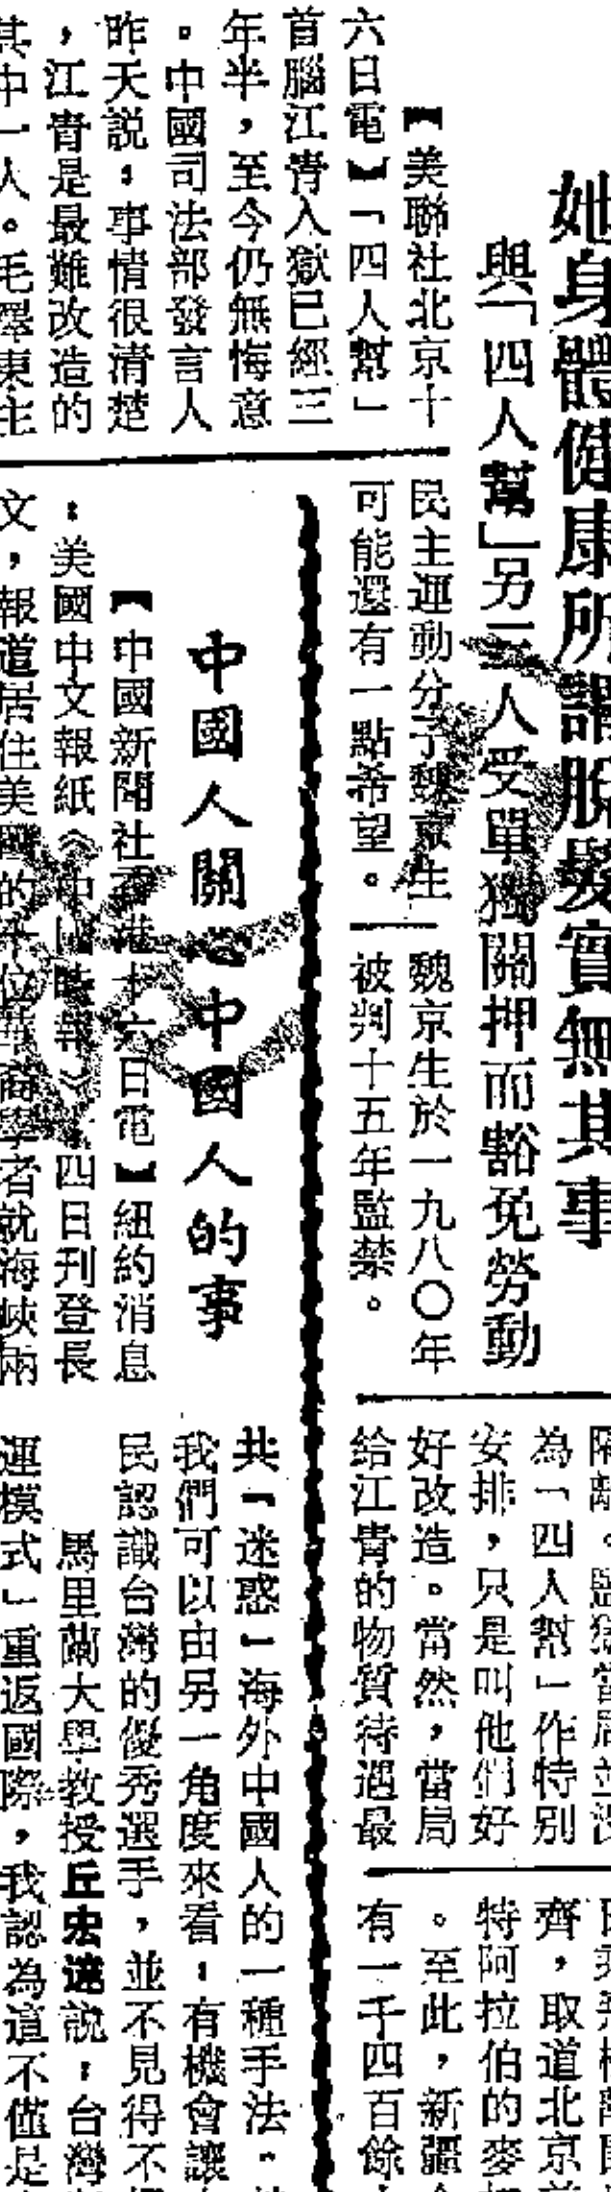 她身體健康所謂脫髮實無其事
與「四人幫」另三人受單獨關押而豁免勞動
【美聯社北京十
六日電】「四人幫」
首腦江青入獄已經三
年半，至今仍無悔意
。中國司法部發言人
昨天說：事情很清楚
，江青是最難改造的
其中一人。毛澤東主
民主運動分子魏京生
可能還有一點希望。
魏京生於一九八〇年
被判十五年監禁。
隔離。監獄當局並沒
為「四人幫」作特別
安排，只是叫他們好
好改造。當然，當局
給江青的物質待遇最
齊，取道北京
特阿拉伯的麥
。至此，新疆
有一千四百餘
中國人關心中國人的事
【中國新聞社香港十六日電】紐約消息
：美國中文報紙《中國時報》四日刊登長
文，報道居住美國的十位華裔學者就海峽兩
共「迷惑」海外中國人的一種手法。
我們可以由另一角度來看：有機會讓
民認識台灣的優秀選手，並不見得不
馬里蘭大學教授丘宏達說：台灣
運模式」重返國際，我認為這不僅是